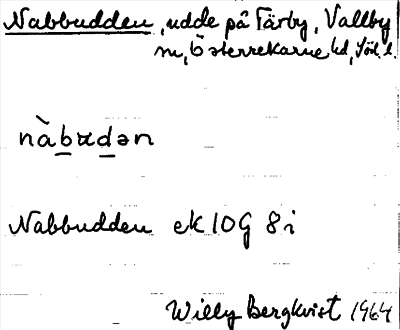 Nabbudden, udde på Tärby, Vallby
sn, Österrekarne hd, Söd. l.
nàbʉdən
Nabbudden ek 10G 8i
Willy Bergkvist 1964